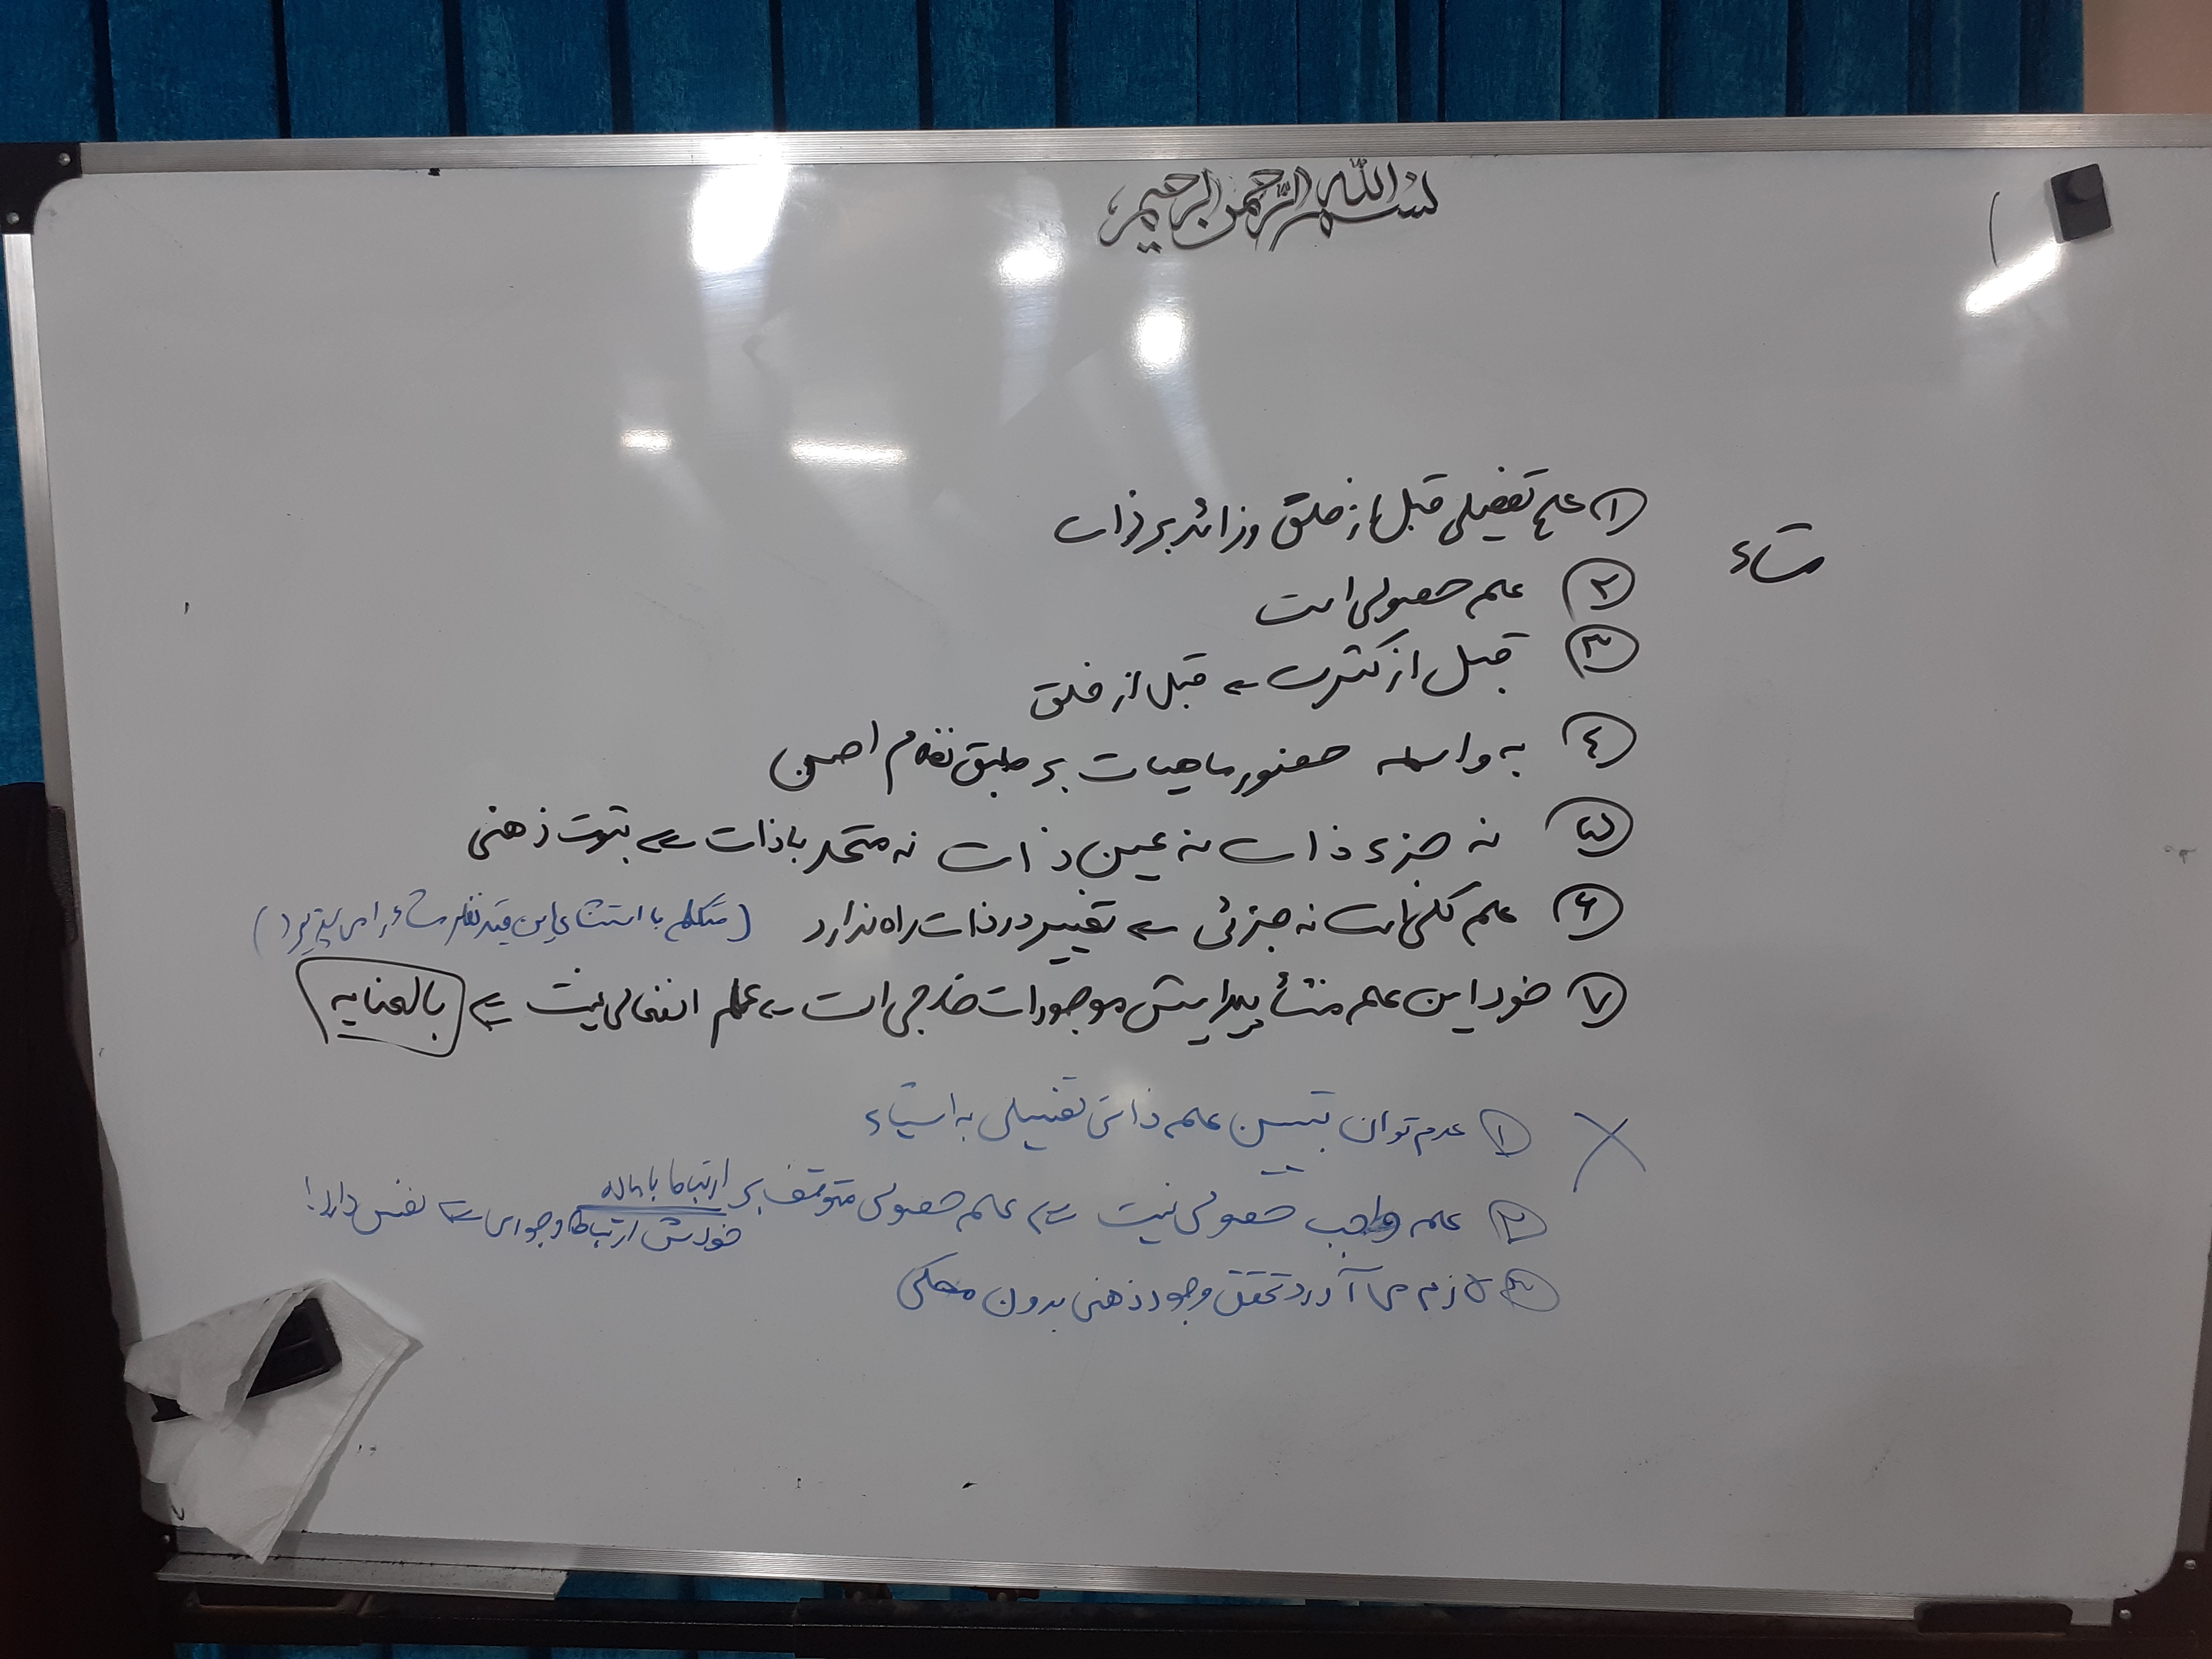 بسم الله الرحمن الرحیم
مشاء
① علم تفصیلی قبل از خلق و زائد بر ذات
② علم حصولی است
③ قبل از کثرت ← قبل از خلق
④ به واسطه حضور ماهیات بر طبق نظام احسن
⑤ نه جزء ذات نه عین ذات نه متحد با ذات ← بثبوت ذهنی
⑥ علم کلی است نه جزئی ← تغییر در ذات راه ندارد (متکلم با استثنای این قید نظر مشاء را می پذیرد)
⑦ خود این علم منشأ پیدایش موجودات خارجی است ← علم انفعالی نیست ← بالعنایه
① عدم توان تبیین علم ذاتی تفصیلی به اشیاء
② علم واجب حصولی نیست ← علم حصولی متوقف بر ارتباط با ماده
خودش ارتباط وجودی ← نفس دارد!
③ لازم می آورد تحقق وجود ذهنی بدون محکی